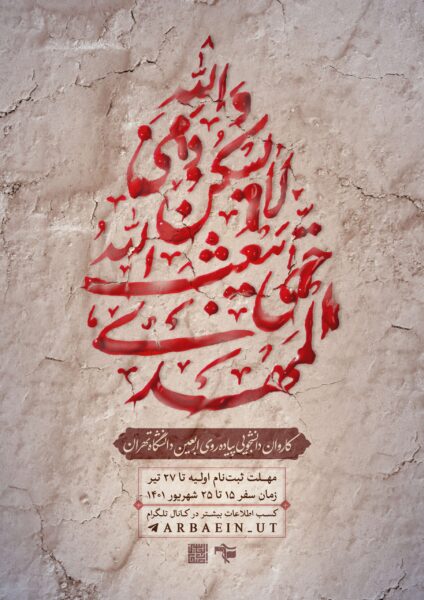 والله
لا یسکن دمی
حتی یبعث الله
المهدی
کاروان دانشجویی پیاده‌روی اربعین دانشگاه تهران
مهلت ثبت‌نام اولیه تا ۲۷ تیر
زمان سفر ۱۵ تا ۲۵ شهریور ۱۴۰۱
کسب اطلاعات بیشتر در کانال تلگرام
ARBAEIN_UT